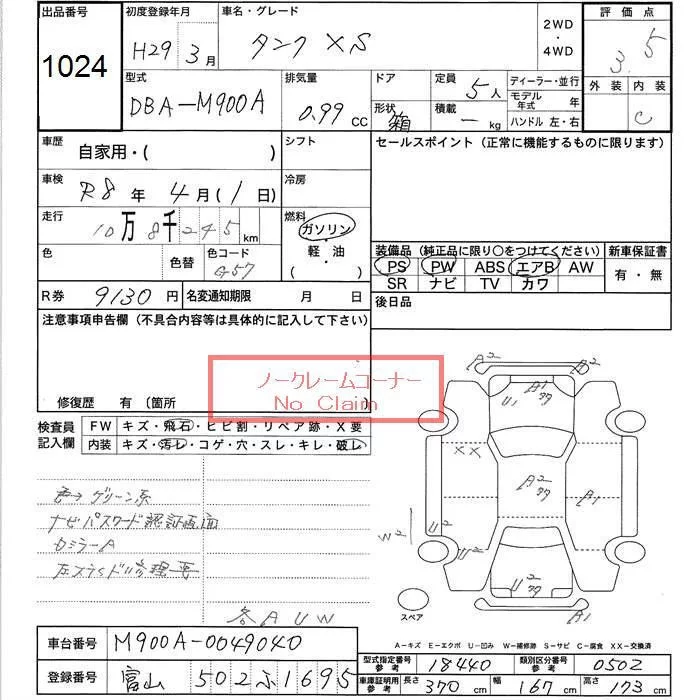 出品番号 1024
初度登録年月 H29 3月
車名・グレード タンク XS
2WD・4WD
評価点 3.5
外装 内装 C
型式 DBA-M900A
排気量 0.99 CC
ドア 形状 箱
定員 5人
積載 - kg
ディーラー・並行
モデル年式 年
ハンドル 左・右
車歴 自家用・( )
シフト
セールスポイント (正常に機能するものに限ります)
車検 R8年 4月 (1日)
冷房
走行 10万8千245km
燃料 ガソリン・軽・油 ( )
色 色替 色コード G57
装備品 (純正品に限り○をつけてください)
PS PW ABS エアB AW
SR ナビ TV カワ
新車保証書 有・無
R券 9130円
名変通知期限 月 日
後日品
注意事項申告欄 (不具合内容等は具体的に記入して下さい)
ノークレームコーナー
No Claim
修復歴 有 (箇所
検査員記入欄
FW キズ・飛石・ヒビ割・リペア跡・X要
内装 キズ・汚レ・コゲ・穴・スレ・キレ・破レ
色→グリーン系
ナビパスワード認証画面
各AUW
A2 A2
U1 A1
XX
A2
A1
U2 U2
W2
U2
A1
スペア
A-キズ E-エクボ U-凹み W-補修跡 S-サビ C-腐食 XX-交換済
車台番号 M900A-0049040
登録番号 富山 502ふ1695
型式指定番号 参考 18440
類別区分番号 参考 0502
車庫証明用 参考 長さ 370cm 幅 167cm 高さ 173cm